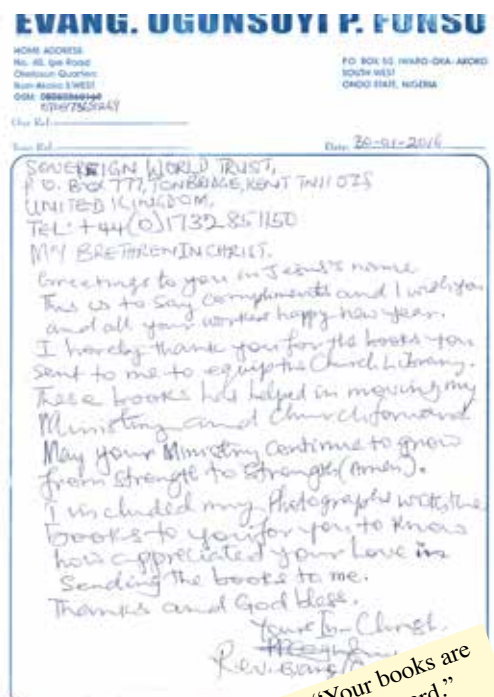 EVANG. OGUNSUYI P. FUNSO
HOME ADDRESS
No. 40, Ipe Road
Quarters
P.O. BOX 50, IWARO-OKA-AKOKO
SOUTH WEST
ONDO STATE, NIGERIA
Our Ref.
Your Ref.
Date: 30-01-2016
SOVEREIGN WORLD TRUST,
P.O. BOX 777, TONBRIDGE, KENT TN11 0ZS
UNITED KINGDOM,
TEL: +44(0)1732 851150
MY BRETHREN IN CHRIST.
Greetings to you in Jesus's name
This is to say compliments and I wish you
and all your workers happy new year.
I hereby thank you for the books you
sent to me to equip the Church Library.
These books has helped in moving my
Ministry and Church forward
May your Ministry continue to grow
from strength to strength (Amen).
I included my Photographs with the
books to you for you to know
how appreciated your love in
Sending the books to me.
Thanks and God bless.
Yours In-Christ.
Rev. Evang
"Your books are